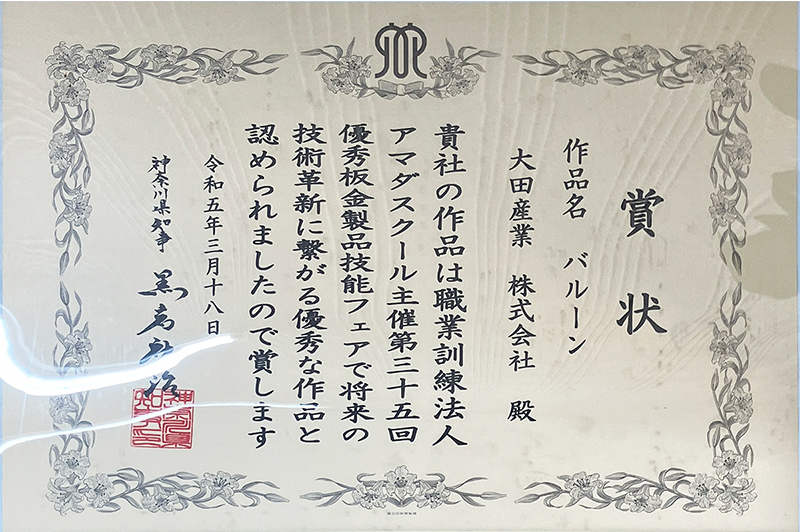 賞状
作品名 バルーン
大田産業 株式会社 殿
貴社の作品は職業訓練法人
アマダスクール主催第三十五回
優秀板金製品技能フェアで将来の
技術革新に繋がる優秀な作品と
認められましたので賞します
令和五年三月十八日
神奈川県知事 黒岩祐治